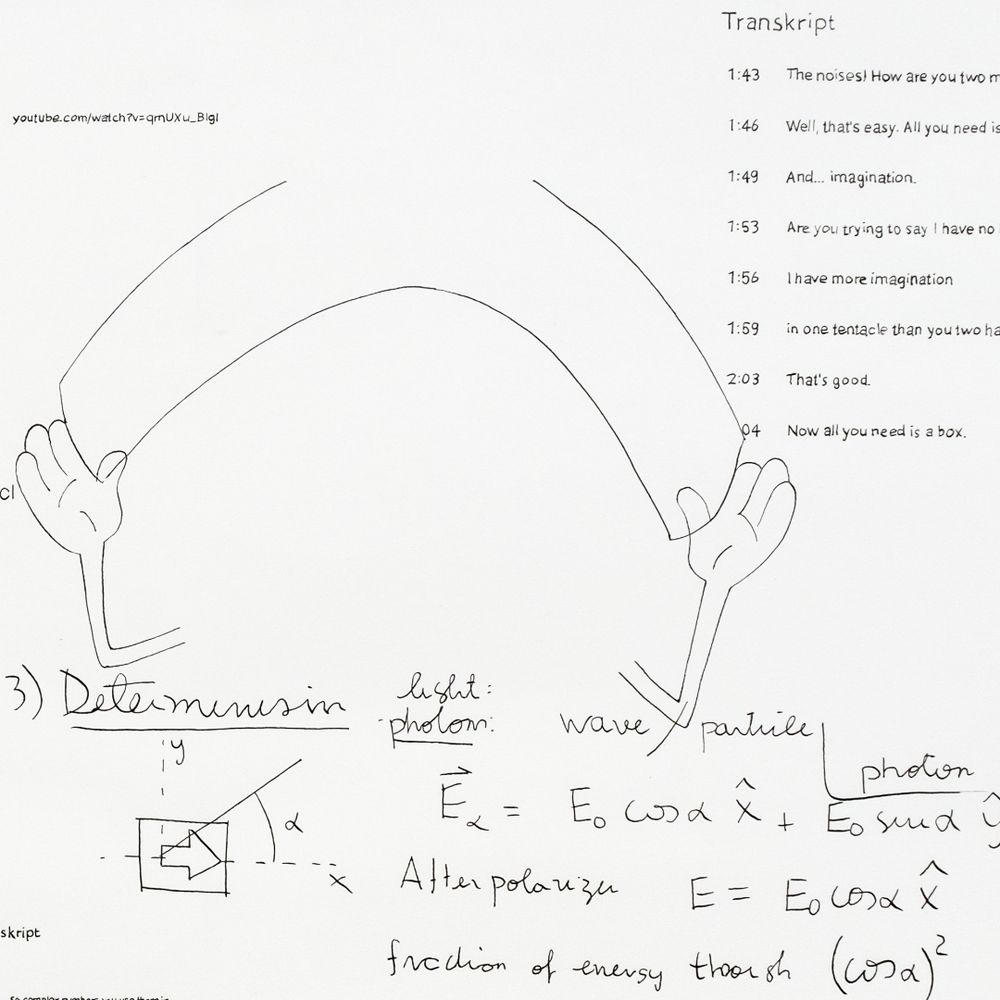 Transkript
1:43 The noises! How are you two m
youtube.com/watch?v=qmUXu_BlgI
1:46 Well, that's easy. All you need is
1:49 And... imagination.
1:53 Are you trying to say I have no
1:56 I have more imagination
1:59 in one tentacle than you two ha
2:03 That's good.
04 Now all you need is a box.
cl
3) Determinism
light:
photon: wave / particle
photon
y
α
x
E⃗α = E₀ cosα x̂ + E₀ sinα ŷ
After polarizer E = E₀ cosα x̂
skript
fraction of energy through (cosα)²
So complex numbers you use them in